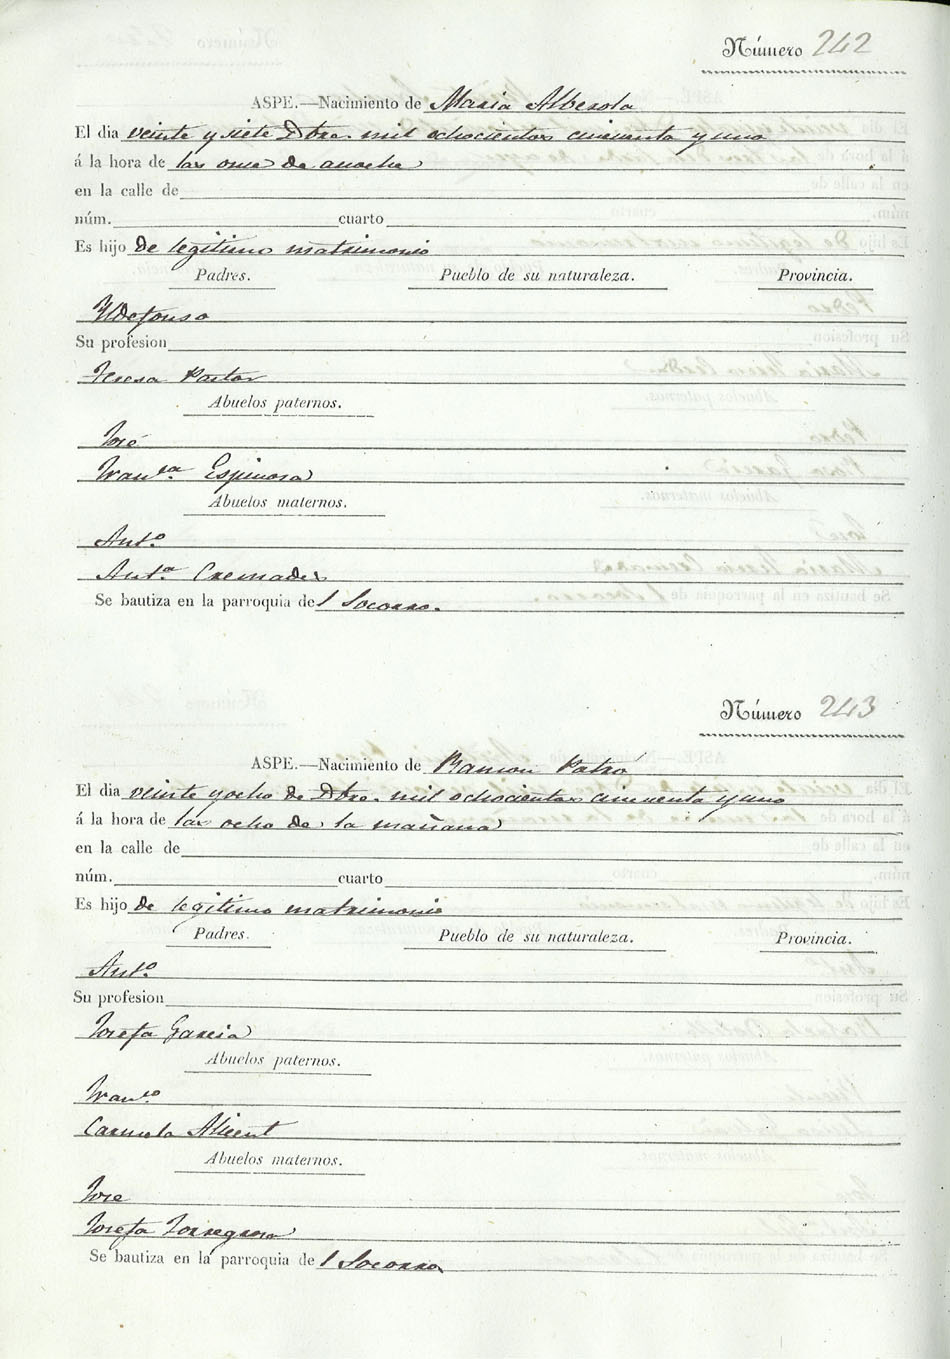 Número 242
ASPE.—Nacimiento de Maria Alberola
El dia veinte y siete Dbre. mil ochocientos cincuenta y uno
á la hora de las once de anoche
en la calle de
núm. cuarto
Es hijo de legitimo matrimonio
Padres. Pueblo de su naturaleza. Provincia.
Yldefonso
Su profesion
Teresa Pastor
Abuelos paternos.
José
Franca. Espinosa
Abuelos maternos.
Anto.
Anta. Cremades
Se bautiza en la parroquia del Socorro.
Número 243
ASPE.—Nacimiento de Ramon Patró
El dia veinte y ocho de Dbre. mil ochocientos cincuenta y uno
á la hora de las ocho de la mañana
en la calle de
núm. cuarto
Es hijo de legitimo matrimonio
Padres. Pueblo de su naturaleza. Provincia.
Anto.
Su profesion
Josefa Garcia
Abuelos paternos.
Franco.
Carmela Alicent
Abuelos maternos.
Jose
Josefa Torregrosa
Se bautiza en la parroquia del Socorro